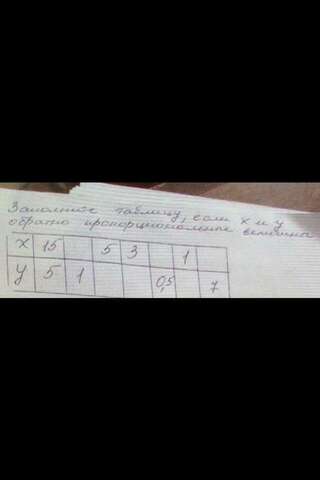 Заполните таблицу, если х и у
обратно пропорциональные величины
х 15 5 3 1
у 5 1 0,5 7